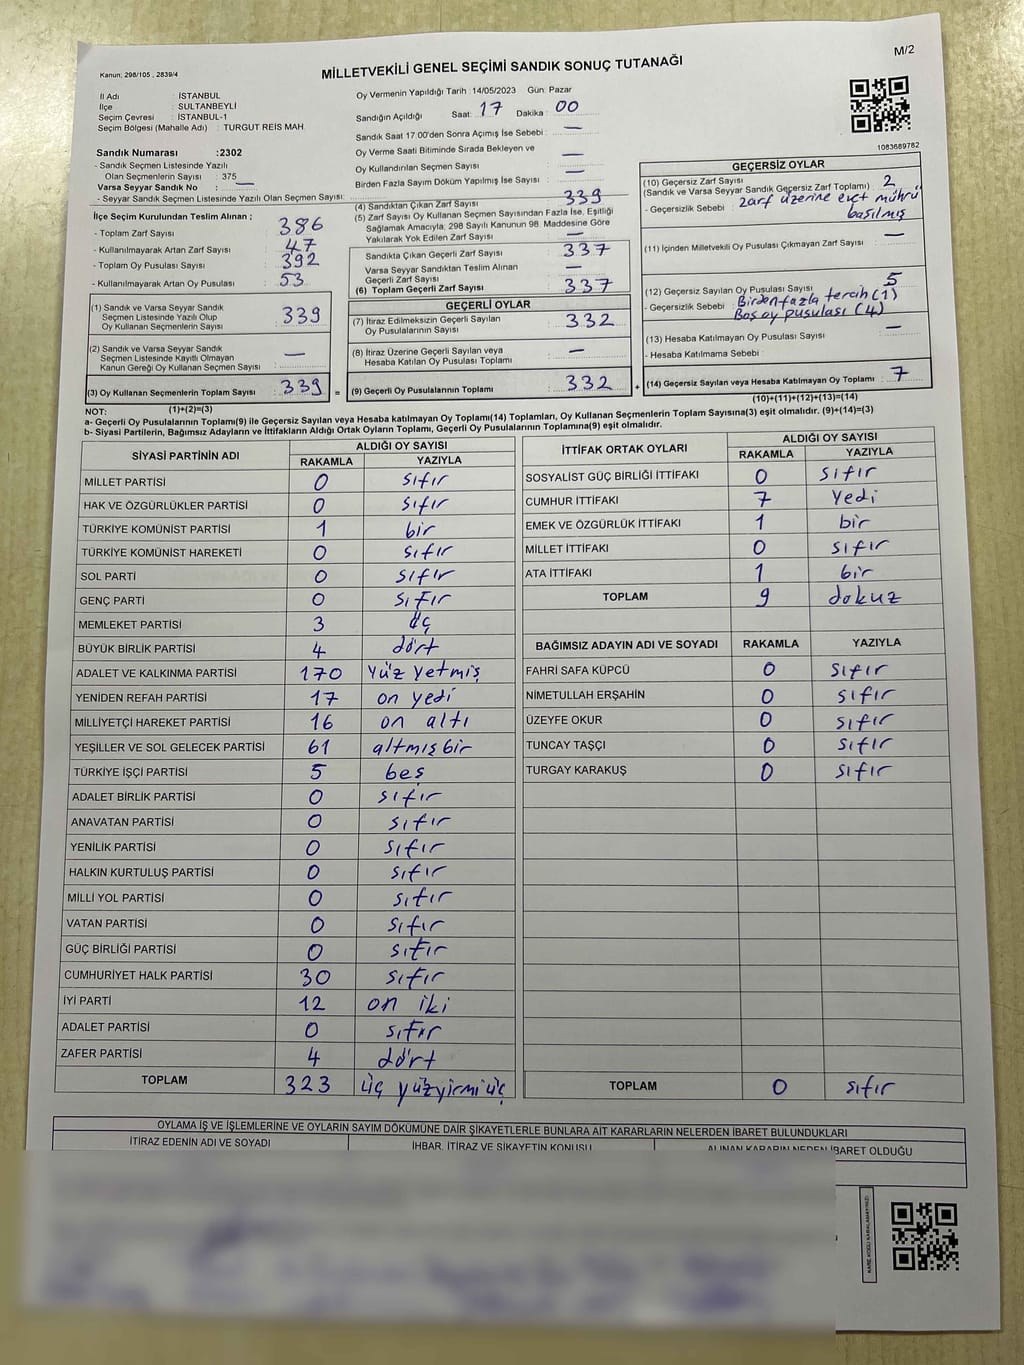 M/2
Kanun; 298/105 , 2839/4
MİLLETVEKİLİ GENEL SEÇİMİ SANDIK SONUÇ TUTANAĞI
İl Adı : İSTANBUL
İlçe : SULTANBEYLİ
Seçim Çevresi : İSTANBUL-1
Seçim Bölgesi (Mahalle Adı) : TURGUT REİS MAH.
Sandık Numarası :2302
- Sandık Seçmen Listesinde Yazılı
Olan Seçmenlerin Sayısı : 375
Varsa Seyyar Sandık No : —
- Seyyar Sandık Seçmen Listesinde Yazılı Olan Seçmen Sayısı:
İlçe Seçim Kurulundan Teslim Alınan ;
- Toplam Zarf Sayısı : 386
- Kullanılmayarak Artan Zarf Sayısı : 47
- Toplam Oy Pusulası Sayısı : 392
- Kullanılmayarak Artan Oy Pusulası : 53
(1) Sandık ve Varsa Seyyar Sandık
Seçmen Listesinde Yazılı Olup
Oy Kullanan Seçmenlerin Sayısı : 339
(2) Sandık ve Varsa Seyyar Sandık
Seçmen Listesinde Kayıtlı Olmayan
Kanun Gereği Oy Kullanan Seçmen Sayısı : —
(3) Oy Kullanan Seçmenlerin Toplam Sayısı : 339 =
Oy Vermenin Yapıldığı Tarih :14/05/2023 Gün: Pazar
Sandığın Açıldığı Saat: 17 Dakika : 00
Sandık Saat 17:00'den Sonra Açımış İse Sebebi : —
Oy Verme Saati Bitiminde Sırada Bekleyen ve
Oy Kullandırılan Seçmen Sayısı : —
Birden Fazla Sayım Döküm Yapılmış İse Sayısı : —
(4) Sandıktan Çıkan Zarf Sayısı : 339
(5) Zarf Sayısı Oy Kullanan Seçmen Sayısından Fazla İse, Eşitliği
Sağlamak Amacıyla; 298 Sayılı Kanunun 98. Maddesine Göre
Yakılarak Yok Edilen Zarf Sayısı : —
Sandıkta Çıkan Geçerli Zarf Sayısı : 337
Varsa Seyyar Sandıktan Teslim Alınan
Geçerli Zarf Sayısı : —
(6) Toplam Geçerli Zarf Sayısı : 337
GEÇERLİ OYLAR
(7) İtiraz Edilmeksizin Geçerli Sayılan
Oy Pusulalarının Sayısı : 332
(8) İtiraz Üzerine Geçerli Sayılan veya
Hesaba Katılan Oy Pusulası Toplamı : —
(9) Geçerli Oy Pusulalarının Toplamı : 332 +
1083689782
GEÇERSİZ OYLAR
(10) Geçersiz Zarf Sayısı : 2
(Sandık ve Varsa Seyyar Sandık Geçersiz Zarf Toplamı)
- Geçersizlik Sebebi : zarf üzerine evet mührü
basılmış
(11) İçinden Milletvekili Oy Pusulası Çıkmayan Zarf Sayısı : —
(12) Geçersiz Sayılan Oy Pusulası Sayısı : 5
- Geçersizlik Sebebi : Birden fazla tercih (1)
Boş oy pusulası (4)
(13) Hesaba Katılmayan Oy Pusulası Sayısı : —
- Hesaba Katılmama Sebebi :
(14) Geçersiz Sayılan veya Hesaba Katılmayan Oy Toplamı : 7
(1)+(2)=(3)
(10)+(11)+(12)+(13)=(14)
NOT:
a- Geçerli Oy Pusulaları Toplamı(9) ile Geçersiz Sayılan veya Hesaba katılmayan Oy Toplamı(14) Toplamları, Oy Kullanan Seçmenlerin Toplam Sayısına(3) eşit olmalıdır. (9)+(14)=(3)
b- Siyasi Partilerin, Bağımsız Adayların ve İttifakların Aldığı Ortak Oyların Toplamı, Geçerli Oy Pusulalarının Toplamına(9) eşit olmalıdır.
SİYASİ PARTİNİN ADI ALDIĞI OY SAYISI
RAKAMLA YAZIYLA
MİLLET PARTİSİ 0 sıfır
HAK VE ÖZGÜRLÜKLER PARTİSİ 0 sıfır
TÜRKİYE KOMÜNİST PARTİSİ 1 bir
TÜRKİYE KOMÜNİST HAREKETİ 0 sıfır
SOL PARTİ 0 sıfır
GENÇ PARTİ 0 sıfır
MEMLEKET PARTİSİ 3 üç
BÜYÜK BİRLİK PARTİSİ 4 dört
ADALET VE KALKINMA PARTİSİ 170 yüz yetmiş
YENİDEN REFAH PARTİSİ 17 on yedi
MİLLİYETÇİ HAREKET PARTİSİ 16 on altı
YEŞİLLER VE SOL GELECEK PARTİSİ 61 altmış bir
TÜRKİYE İŞÇİ PARTİSİ 5 beş
ADALET BİRLİK PARTİSİ 0 sıfır
ANAVATAN PARTİSİ 0 sıfır
YENİLİK PARTİSİ 0 sıfır
HALKIN KURTULUŞ PARTİSİ 0 sıfır
MİLLİ YOL PARTİSİ 0 sıfır
VATAN PARTİSİ 0 sıfır
GÜÇ BİRLİĞİ PARTİSİ 0 sıfır
CUMHURİYET HALK PARTİSİ 30 sıfır
İYİ PARTİ 12 on iki
ADALET PARTİSİ 0 sıfır
ZAFER PARTİSİ 4 dört
TOPLAM 323 üç yüzyirmi üç
İTTİFAK ORTAK OYLARI ALDIĞI OY SAYISI
RAKAMLA YAZIYLA
SOSYALİST GÜÇ BİRLİĞİ İTTİFAKI 0 sıfır
CUMHUR İTTİFAKI 7 yedi
EMEK VE ÖZGÜRLÜK İTTİFAKI 1 bir
MİLLET İTTİFAKI 0 sıfır
ATA İTTİFAKI 1 bir
TOPLAM 9 dokuz
BAĞIMSIZ ADAYIN ADI VE SOYADI RAKAMLA YAZIYLA
FAHRİ SAFA KÜPCÜ 0 sıfır
NİMETULLAH ERŞAHİN 0 sıfır
ÜZEYFE OKUR 0 sıfır
TUNCAY TAŞÇI 0 sıfır
TURGAY KARAKUŞ 0 sıfır
TOPLAM 0 sıfır
OYLAMA İŞ VE İŞLEMLERİNE VE OYLARIN SAYIM DÖKÜMÜNE DAİR ŞİKAYETLERLE BUNLARA AİT KARARLARIN NELERDEN İBARET BULUNDUKLARI
İTİRAZ EDENİN ADI VE SOYADI İHBAR, İTİRAZ VE ŞİKAYETİN KONUSU ALINAN KARARIN NEDEN İBARET OLDUĞU
KARE KODU KARALAMAYINIZ!